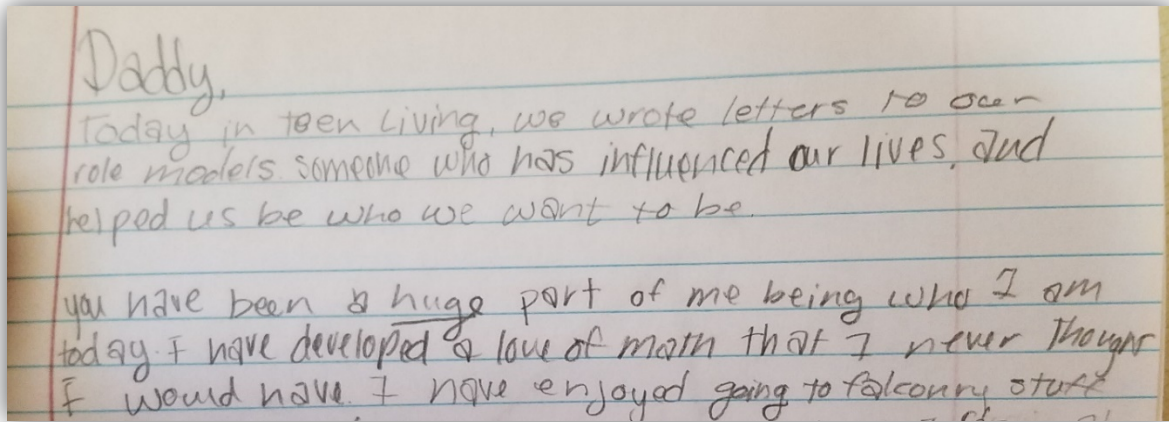 Daddy,
Today in teen Living, we wrote letters to our
role models. someone who has influenced our lives, and
helped us be who we want to be.
you have been a huge part of me being who I am
today. I have developed a love of math that I never Thought
I would have. I have enjoyed going to falconry stuff